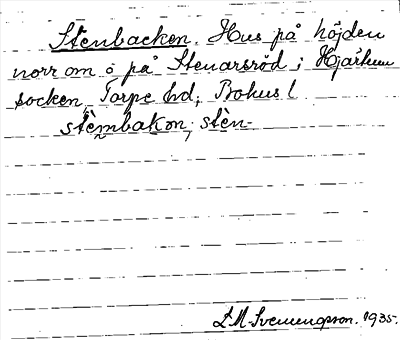 Stenbacken. Hus på höjden
norr om ö på Stenarsröd i Hjärtum
socken, Torpe hd, Bohus l
stèmbakən, stèn-
L.M. Svenungsson. 1935.